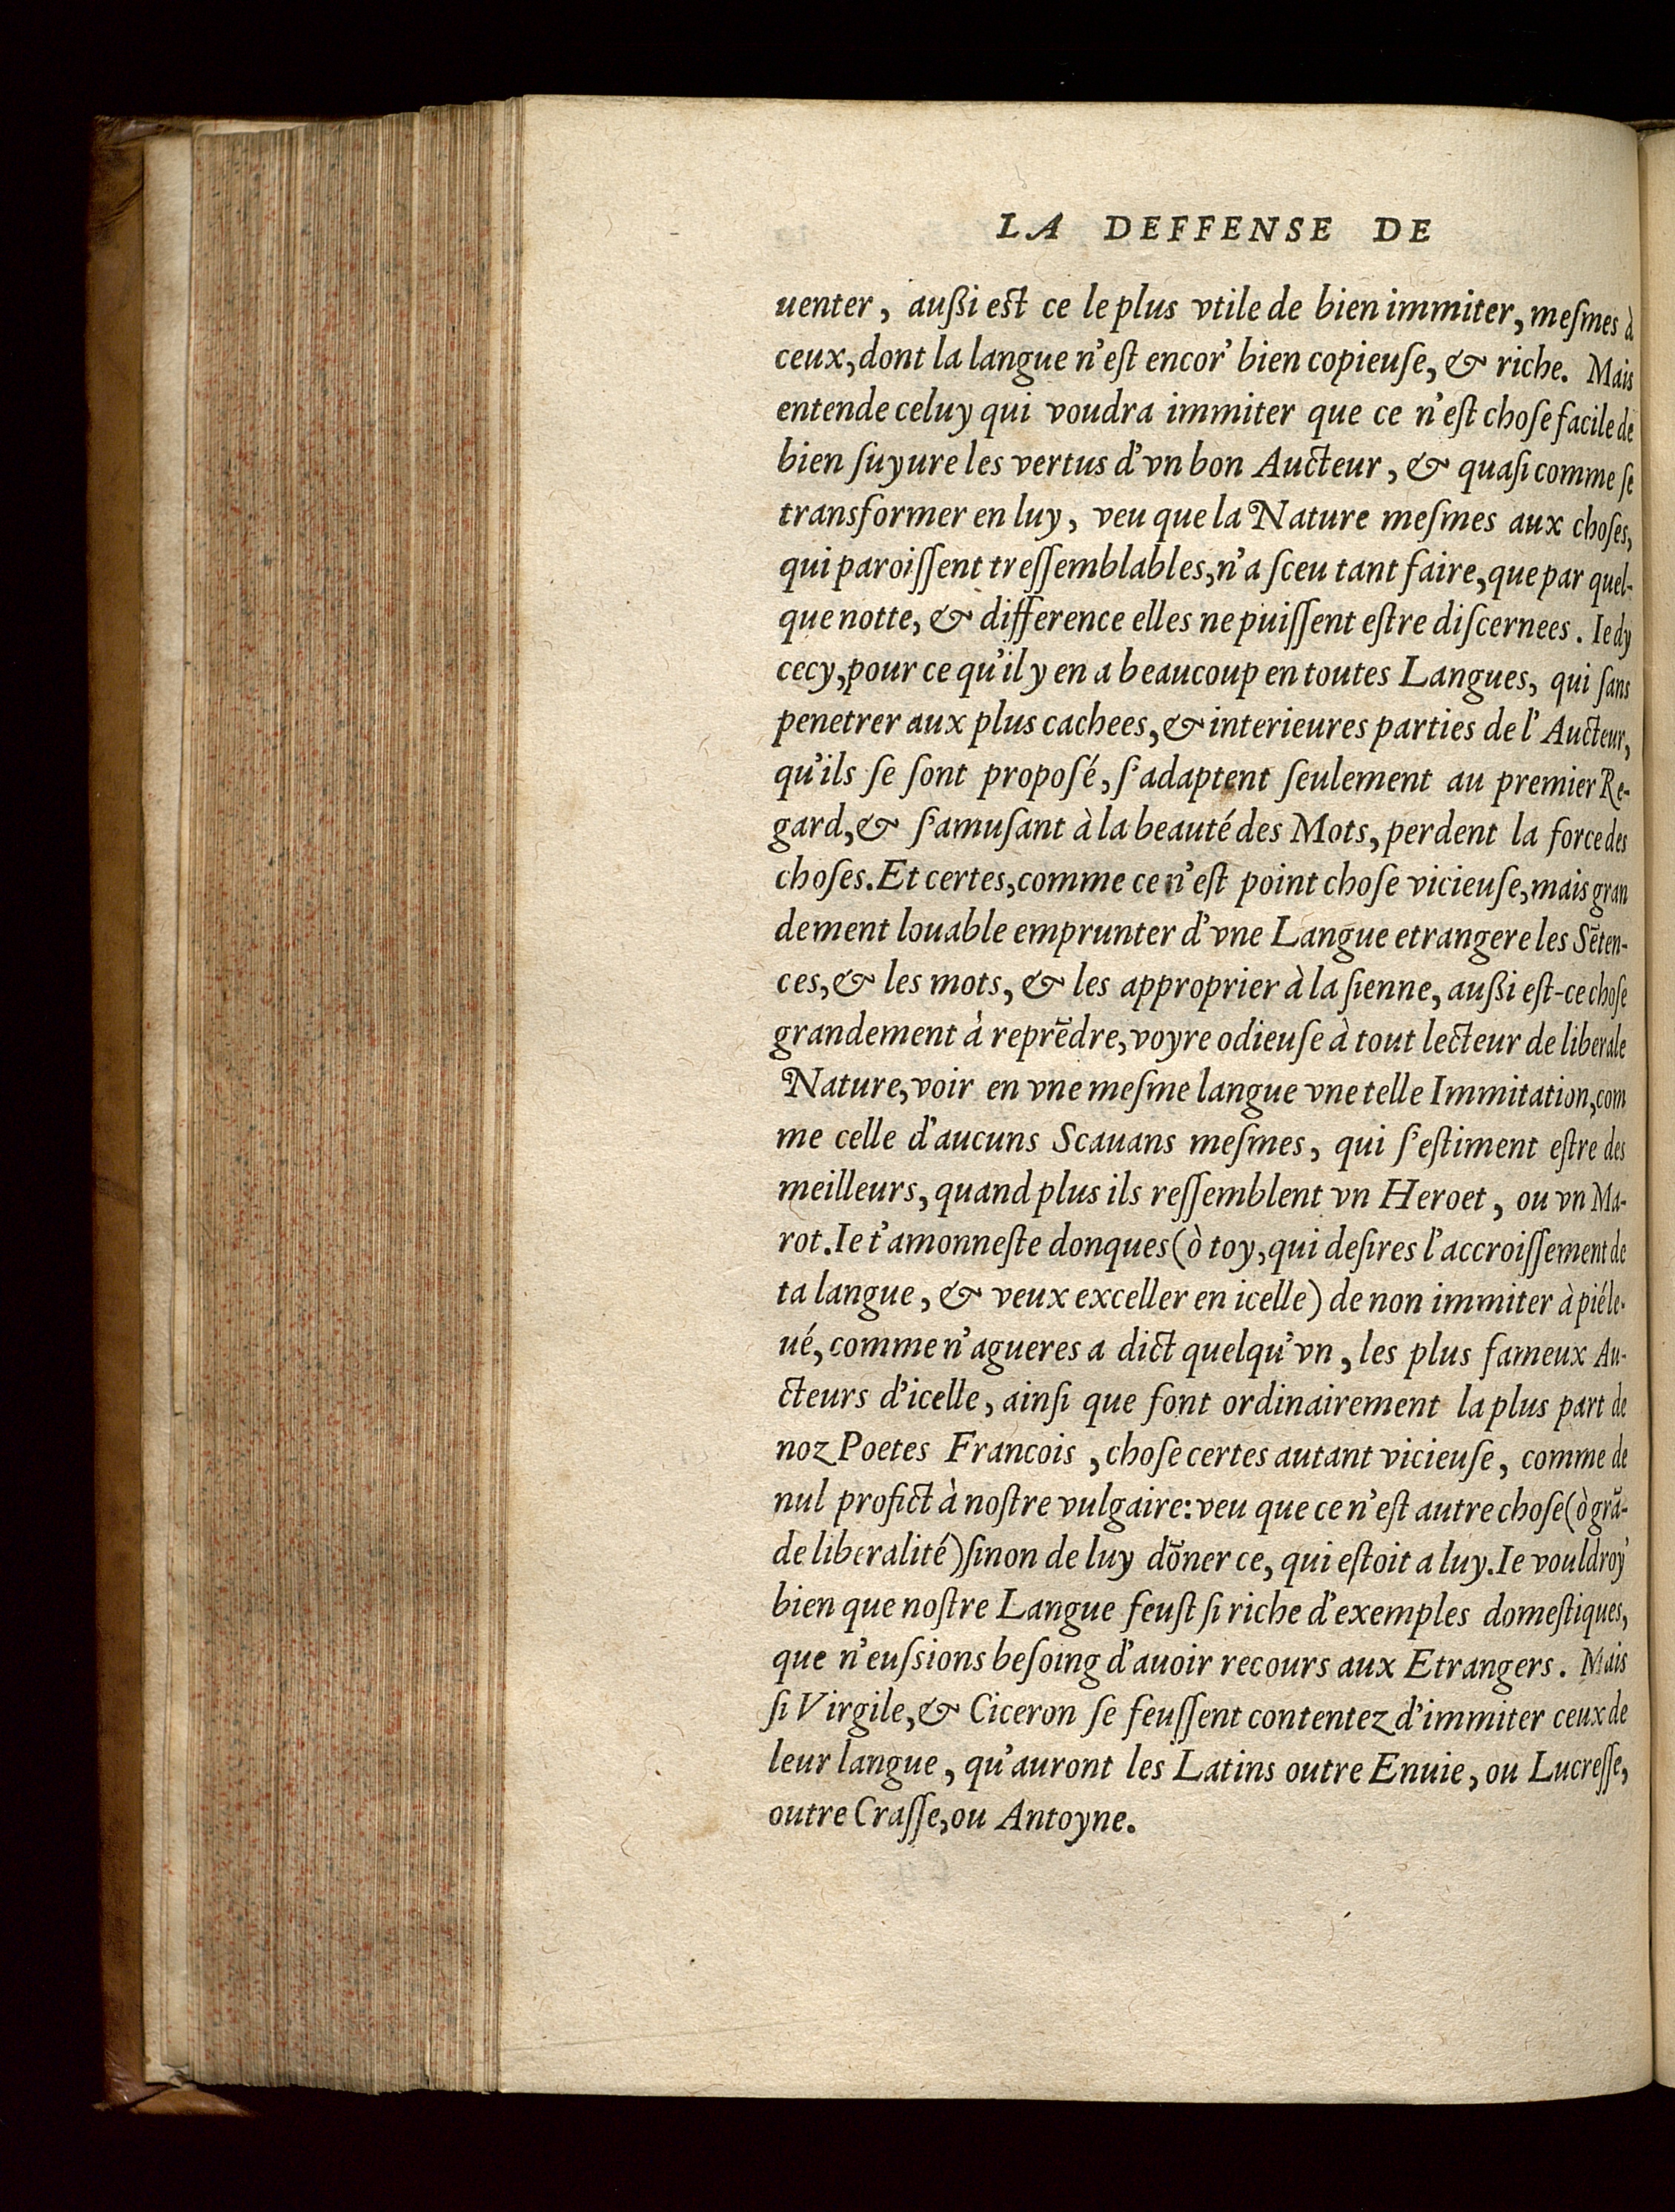 LA DEFFENSE DE
uenter, außi est ce le plus vtile de bien immiter, meſmes à
ceux, dont la langue n'eſt encor' bien copieuſe, & riche. Mais
entende celuy qui voudra immiter que ce n'eſt choſe facile de
bien ſuyure les vertus d'vn bon Aucteur, & quaſi comme ſe
transformer en luy, veu que la Nature meſmes aux choſes,
qui paroiſſent treſſemblables, n'a ſceu tant faire, que par quel-
que notte, & difference elles ne puiſſent eſtre diſcernees. Ie dy
cecy, pour ce qu'il y en a beaucoup en toutes Langues, qui ſans
penetrer aux plus cachees, & interieures parties de l'Aucteur,
qu'ils ſe ſont propoſé, ſ'adaptent ſeulement au premier Re-
gard, & ſ'amuſant à la beauté des Mots, perdent la force des
choſes. Et certes, comme ce n'eſt point choſe vicieuſe, mais gran
dement louable emprunter d'vne Langue etrangere les Sēten-
ces, & les mots, & les approprier à la ſienne, außi eſt-ce choſe
grandement à reprēdre, voyre odieuſe à tout lecteur de liberale
Nature, voir en vne meſme langue vne telle Immitation, com
me celle d'aucuns Scauans meſmes, qui ſ'eſtiment eſtre des
meilleurs, quand plus ils reſſemblent vn Heroet, ou vn Ma-
rot. Ie t'amonneſte donques (ò toy, qui deſires l'accroiſſement de
ta langue, & veux exceller en icelle) de non immiter à pié le-
ué, comme n'agueres a dict quelqu'vn, les plus fameux Au-
cteurs d'icelle, ainſi que font ordinairement la plus part de
noz Poetes Francois, choſe certes autant vicieuſe, comme de
nul profict à noſtre vulgaire: veu que ce n'eſt autre choſe (ò grā-
de liberalité) ſinon de luy dōner ce, qui eſtoit a luy. Ie vouldroy'
bien que noſtre Langue feuſt ſi riche d'exemples domeſtiques,
que n'euſsions beſoing d'auoir recours aux Etrangers. Mais
ſi Virgile, & Ciceron ſe feuſſent contentez d'immiter ceux de
leur langue, qu'auront les Latins outre Enuie, ou Lucreſſe,
outre Craſſe, ou Antoyne.